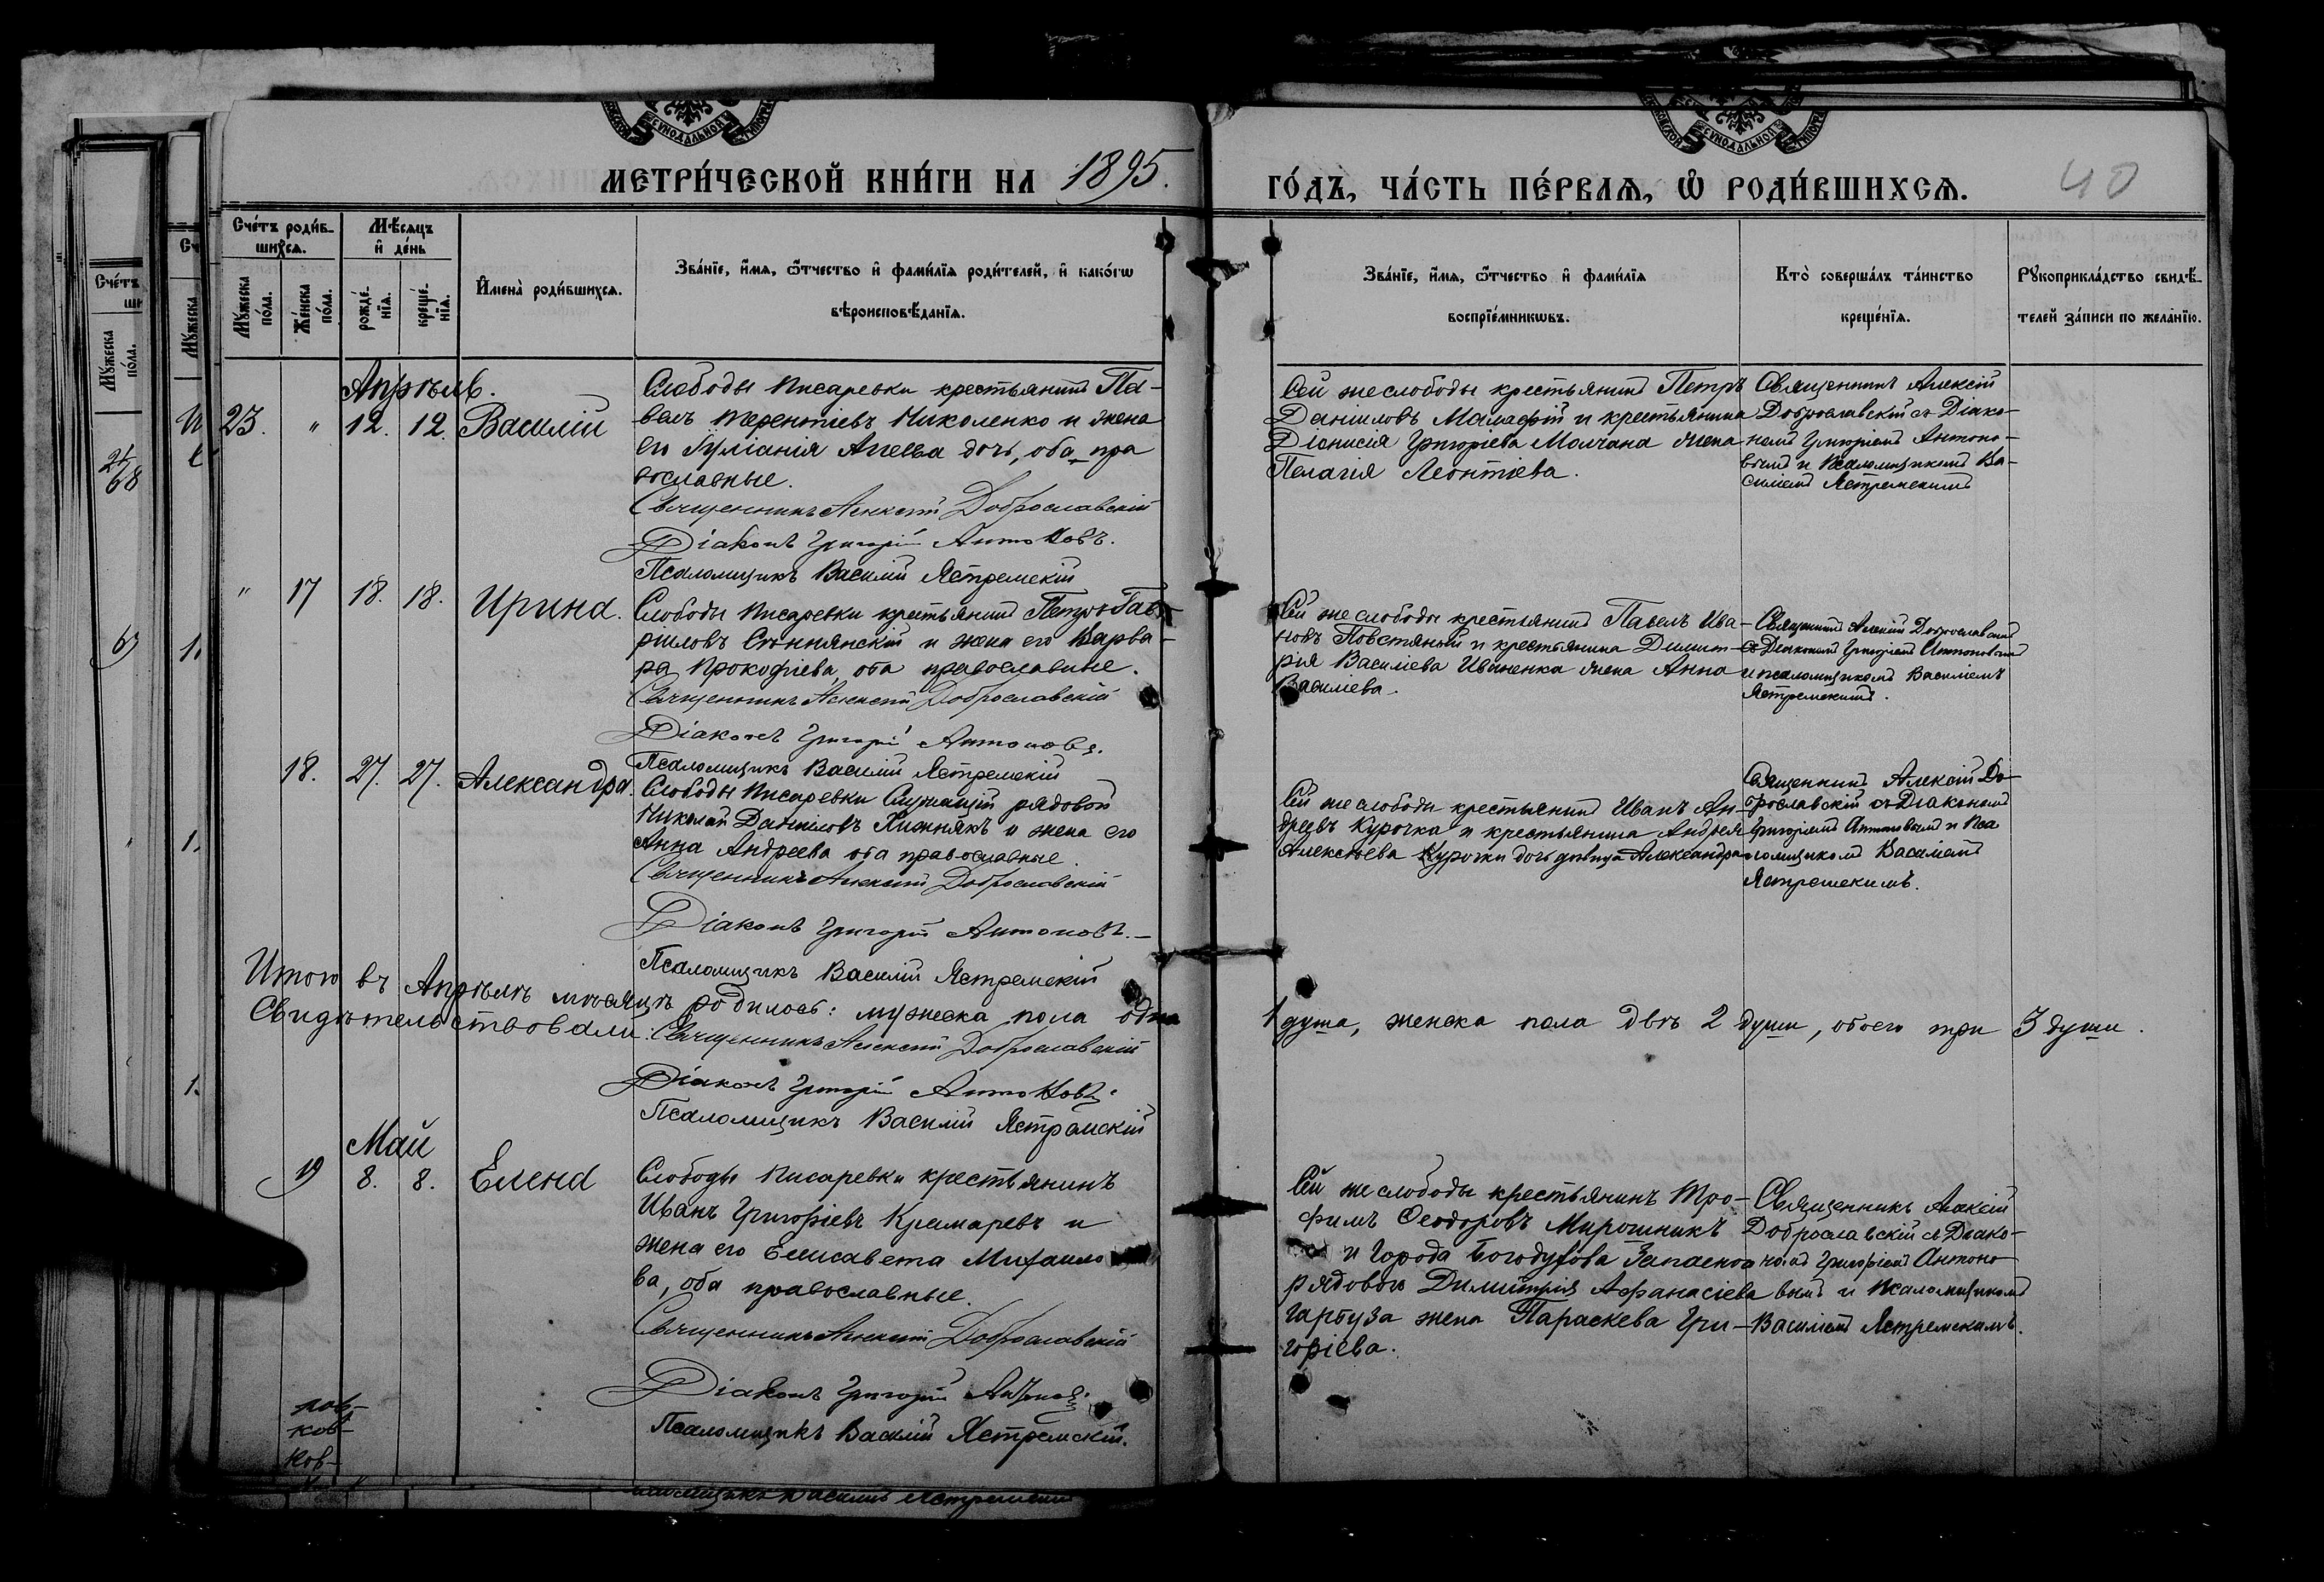 МЕТРИ́ЧЕСКОЙ КНИ́ГИ НА 1895.
ГО́ДЪ, ЧА́СТЬ ПЕ́РВАѦ, Ѡ҆ РОДИ́ВШИХСѦ.
40
Сче́тъ роди́в-
шихсѧ.
Мѣ́сѧцъ
и҆ де́нь
Мꙋ́жеска
по́ла.
Же́нска
по́ла.
рожде́-
нїѧ.
креще́-
нїѧ.
И҆мена̀ роди́вшихсѧ.
Зва́нїе, и҆́мѧ, ѻ҆́тчество и҆ фами́лїѧ роди́телей, и҆ како́гѡ
вѣроисповѣ́данїѧ.
Зва́нїе, и҆́мѧ, ѻ҆́тчество и҆ фами́лїѧ
воспрїе́мникѡвъ.
Кто̀ соверша́лъ та́инство
креще́нїѧ.
Рꙋкоприкла́дство свидѣ́-
телей за́писи по жела́нїю.
Апрѣль.
23. " 12. 12. Василій
Слободы Писаревки крестьянинъ Па-
велъ Терентіевъ Николенко и жена
его Іуліанія Агеева дочь, оба пра
вославные.
Священникъ Алексій Доброславскій
Діаконъ Григорій Антоновъ.
Псаломщикъ Василій Ястремскій
Сей же слободы крестьянинъ Петръ
Даниловъ и крестьянина
Діонисія Григоріева Молчана жена
Пелагія Леонтіева.
Священникъ Алексій
Доброславскій съ Діако-
номъ Григоріемъ Антоно-
вымъ и Псаломщикомъ Ва-
силіемъ Ястремскимъ
" 17 18. 18. Ирина.
Слободы Писаревки крестьянинъ Петръ Гав-
ріиловъ и жена его Варва-
ра Прокофіева, оба православные.
Священникъ Алексій Доброславскій
Діаконъ Григорій Антоновъ.
Псаломщикъ Василій Ястремскій
Сей же слободы крестьянинъ Павелъ Ива-
новъ Повстяный и крестьянина Димит-
рія Василіева Иваненка жена Анна
Василіева.
Священникъ Алексій Доброславскій
съ Діакономъ Григоріемъ Антоновымъ
и псаломщикомъ Василіемъ
Ястремскимъ.
18. 27. 27. Александра.
Слободы Писаревки Служащій рядовой
Николай Даниловъ Хижнякъ и жена его
Анна Андреева оба православные.
Священникъ Алексій Доброславскій
Діаконъ Григорій Антоновъ.
Псаломщикъ Василій Ястремскій
Сей же слободы крестьянинъ Иванъ Ан-
дреевъ Курочка и крестьянина Андрея
Алексѣева Курочки дочь дѣвица Александра
Священникъ Алексій До-
брославскій съ Діакономъ
Григоріемъ Антоновымъ и Пса
ломщикомъ Василіемъ
Ястремскимъ.
Итого въ Апрѣлѣ мѣсяцѣ родилось: мужеска пола одна
1 душа, женска пола двѣ 2 души, обоего три 3 души.
Свидѣтельствовали: Священникъ Алексій Доброславскій
Діаконъ Григорій Антоновъ.
Псаломщикъ Василій Ястремскій
Май
19 8. 8. Елена
Слободы Писаревки крестьянинъ
Иванъ Григоріевъ Крамаревъ и
жена его Елисавета Михаило
ва, оба православные.
Священникъ Алексій Доброславскій
Діаконъ Григорій Антоновъ.
Псаломщикъ Василій Ястремскій.
Сей же слободы крестьянинъ Тро-
фимъ Ѳеодоровъ Мирошникъ
и города Богодухова Запаснаго
рядового Димитрія Аѳанасіева
Гарбуза жена Параскева Гри-
горіева.
Священникъ Алексій
Доброславскій съ Діако-
номъ Григоріемъ Антоно
вымъ и Псаломщикомъ
Василіемъ Ястремскимъ.